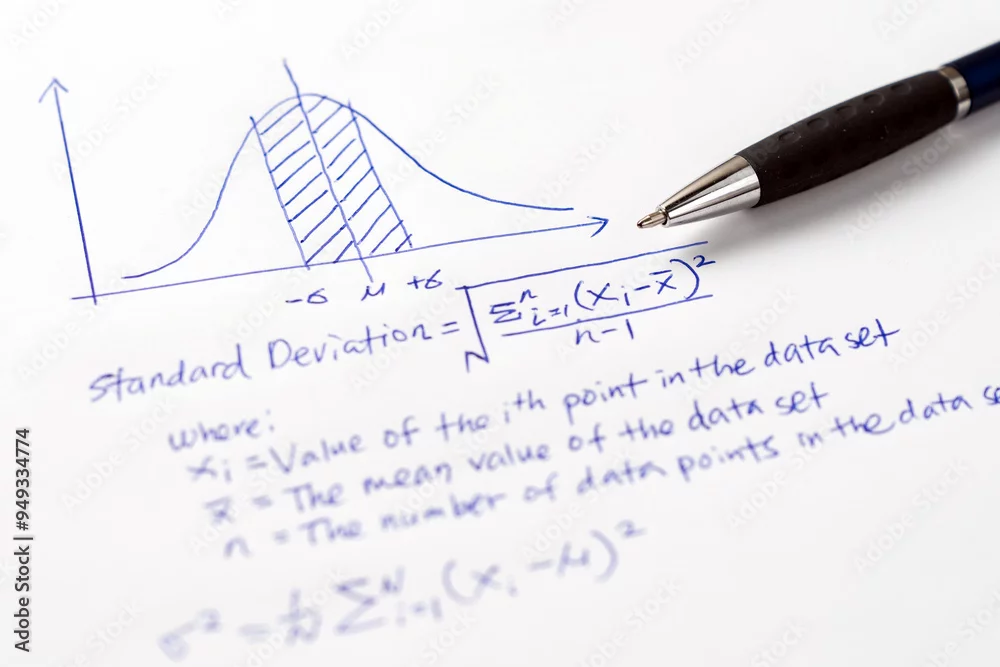 -σ μ +σ
Standard Deviation = √(Σⁿᵢ₌₁(xᵢ-x̄)²/(n-1))
where:
xᵢ = Value of the iᵗʰ point in the data set
x̄ = The mean value of the data set
n = The number of data points in the data se
σ² = 1/N Σᴺᵢ₌₁(xᵢ-μ)²
Adobe Stock | #949334774